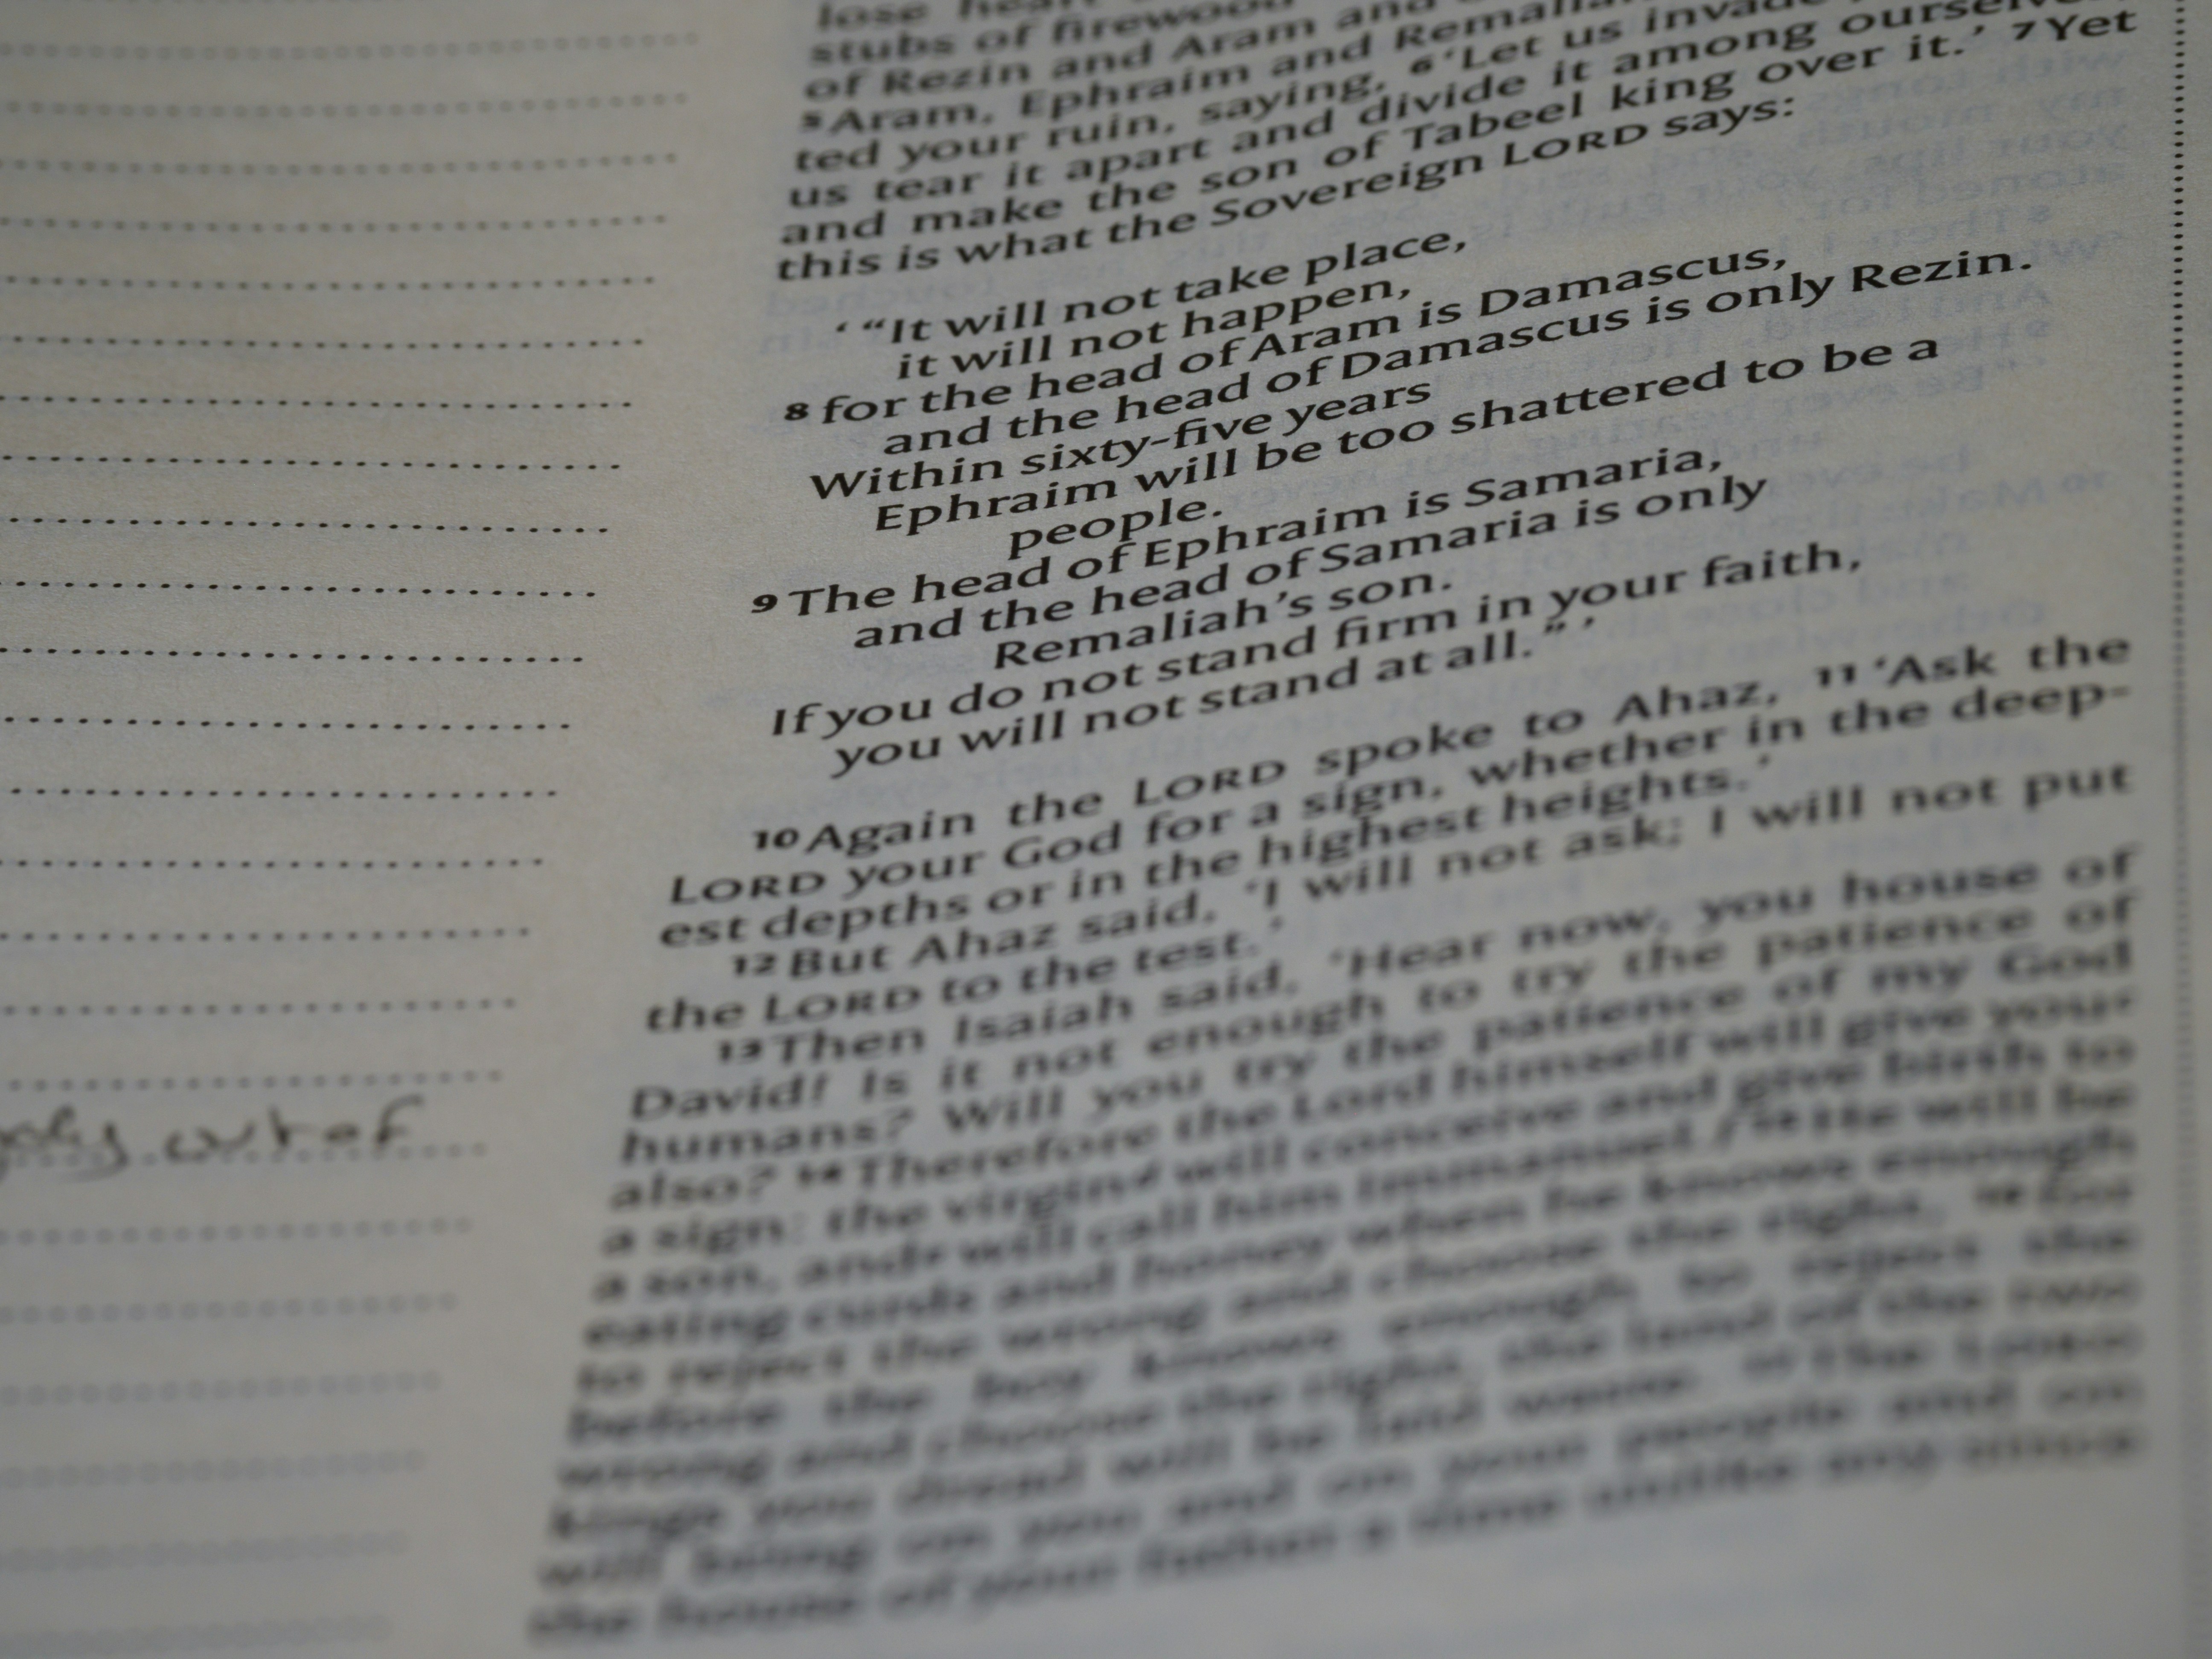 lose
stubs of firewood
of Rezin and Aram and
5 Aram, Ephraim and
ted your ruin, saying, 6 ‘Let us invade
us tear it apart and divide it among
and make the son of Tabeel king over it.’ 7 Yet
this is what the Sovereign LORD says:
‘ “It will not take place,
it will not happen,
8 for the head of Aram is Damascus,
and the head of Damascus is only Rezin.
Within sixty-five years
Ephraim will be too shattered to be a
people.
9 The head of Ephraim is Samaria,
and the head of Samaria is only
Remaliah’s son.
If you do not stand firm in your faith,
you will not stand at all.” ’
10 Again the LORD spoke to Ahaz, 11 ‘Ask the
LORD your God for a sign, whether in the deep-
est depths or in the highest heights.’
12 But Ahaz said, ‘I will not ask; I will not put
the LORD to the test.’
13 Then Isaiah said, ‘Hear now, you house of
David! Is it not enough to try the patience of
humans? Will you try the patience of my God
also? 14 Therefore the Lord himself will give you
a sign: the virgin will conceive and give birth to
a son, and will call him Immanuel. 15 He will be
eating curds and honey when he knows enough
to reject the wrong and choose the right,
before the boy knows enough to reject the
wrong and choose the right, the land of the two
kings you dread will be laid waste.
will bring on you and on your people and on
the house of your father a time unlike any since